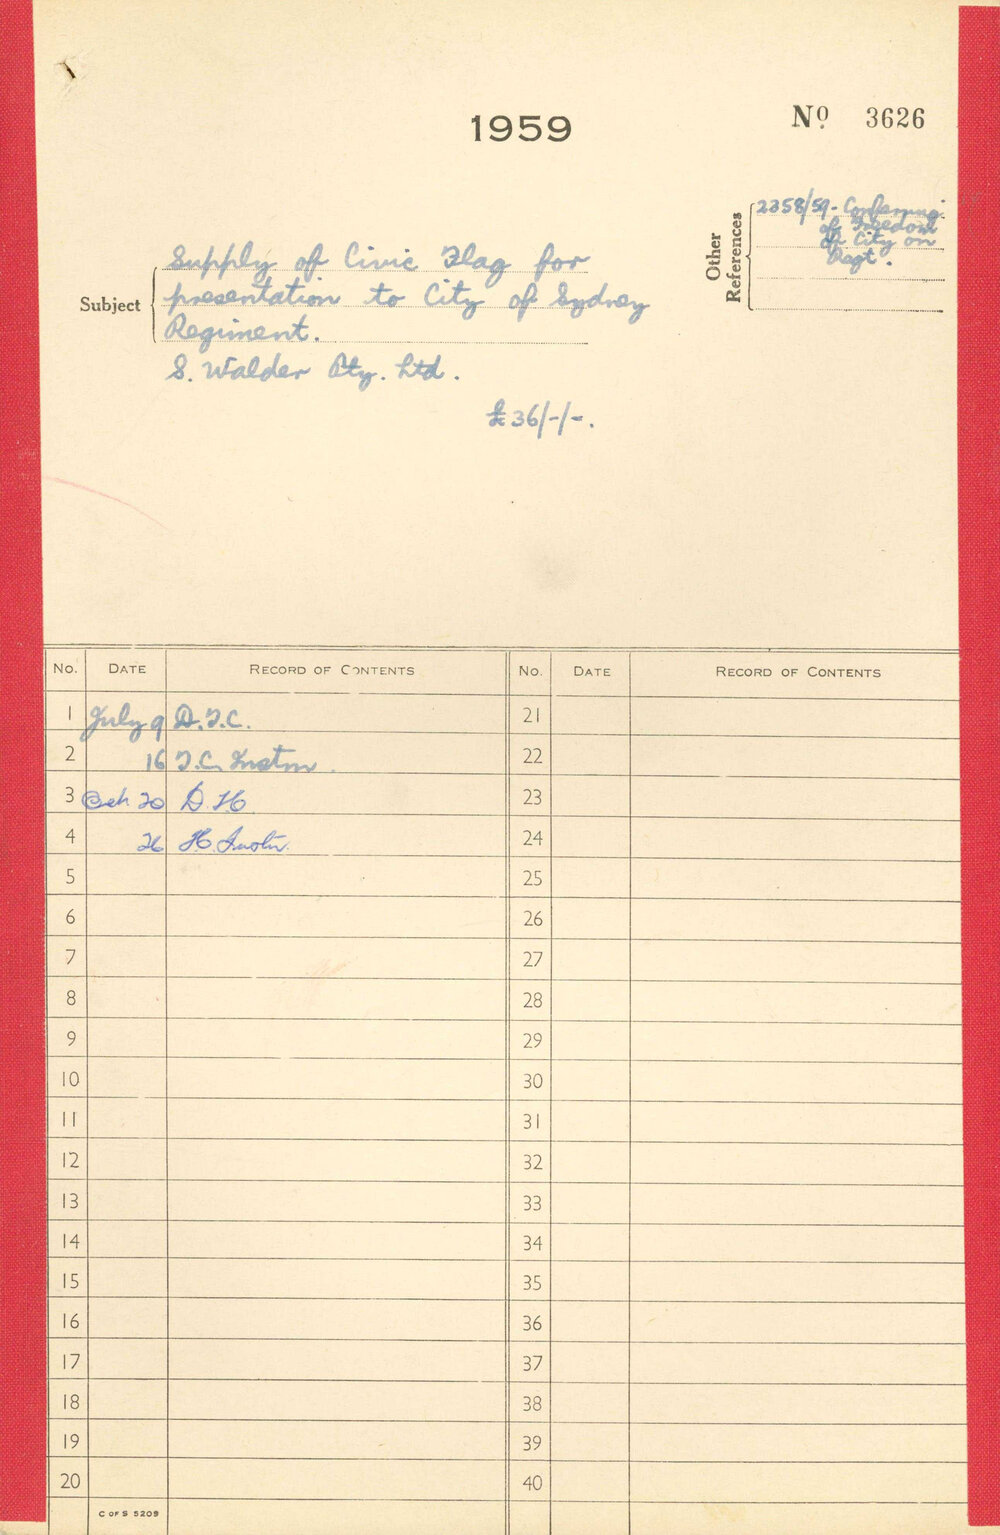 1959
No. 3626
Other References
2358/59 - Conferring
of Freedom
of City on
Regt.
Subject
Supply of Civic Flag for
presentation to City of Sydney
Regiment.
S. Walder Pty. Ltd.
£36/-/-.
No. DATE RECORD OF CONTENTS No. DATE RECORD OF CONTENTS
1 July 9 D.T.C. 21
2 16 T.C. 22
3 20 D.H 23
4 26 H. 24
5 25
6 26
7 27
8 28
9 29
10 30
11 31
12 32
13 33
14 34
15 35
16 36
17 37
18 38
19 39
20 40
C OF S 5209